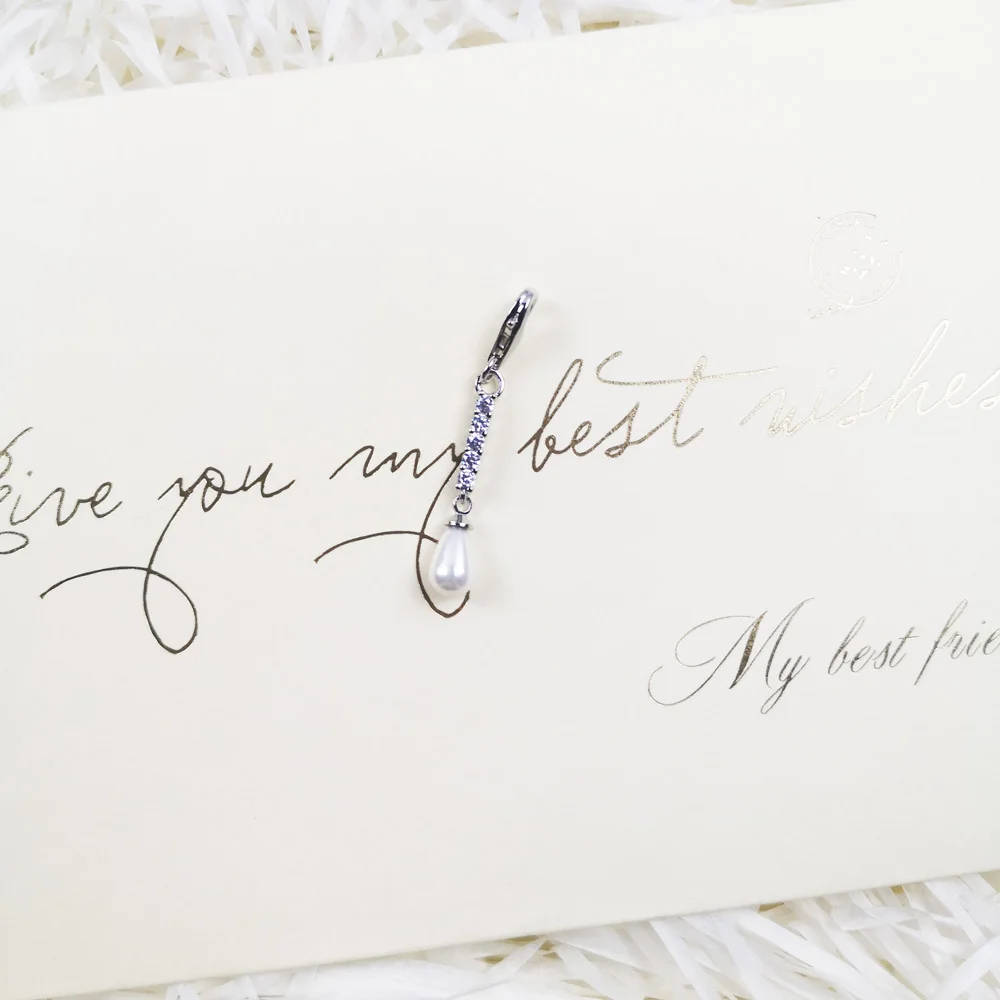 give you my best wishes
My best frie